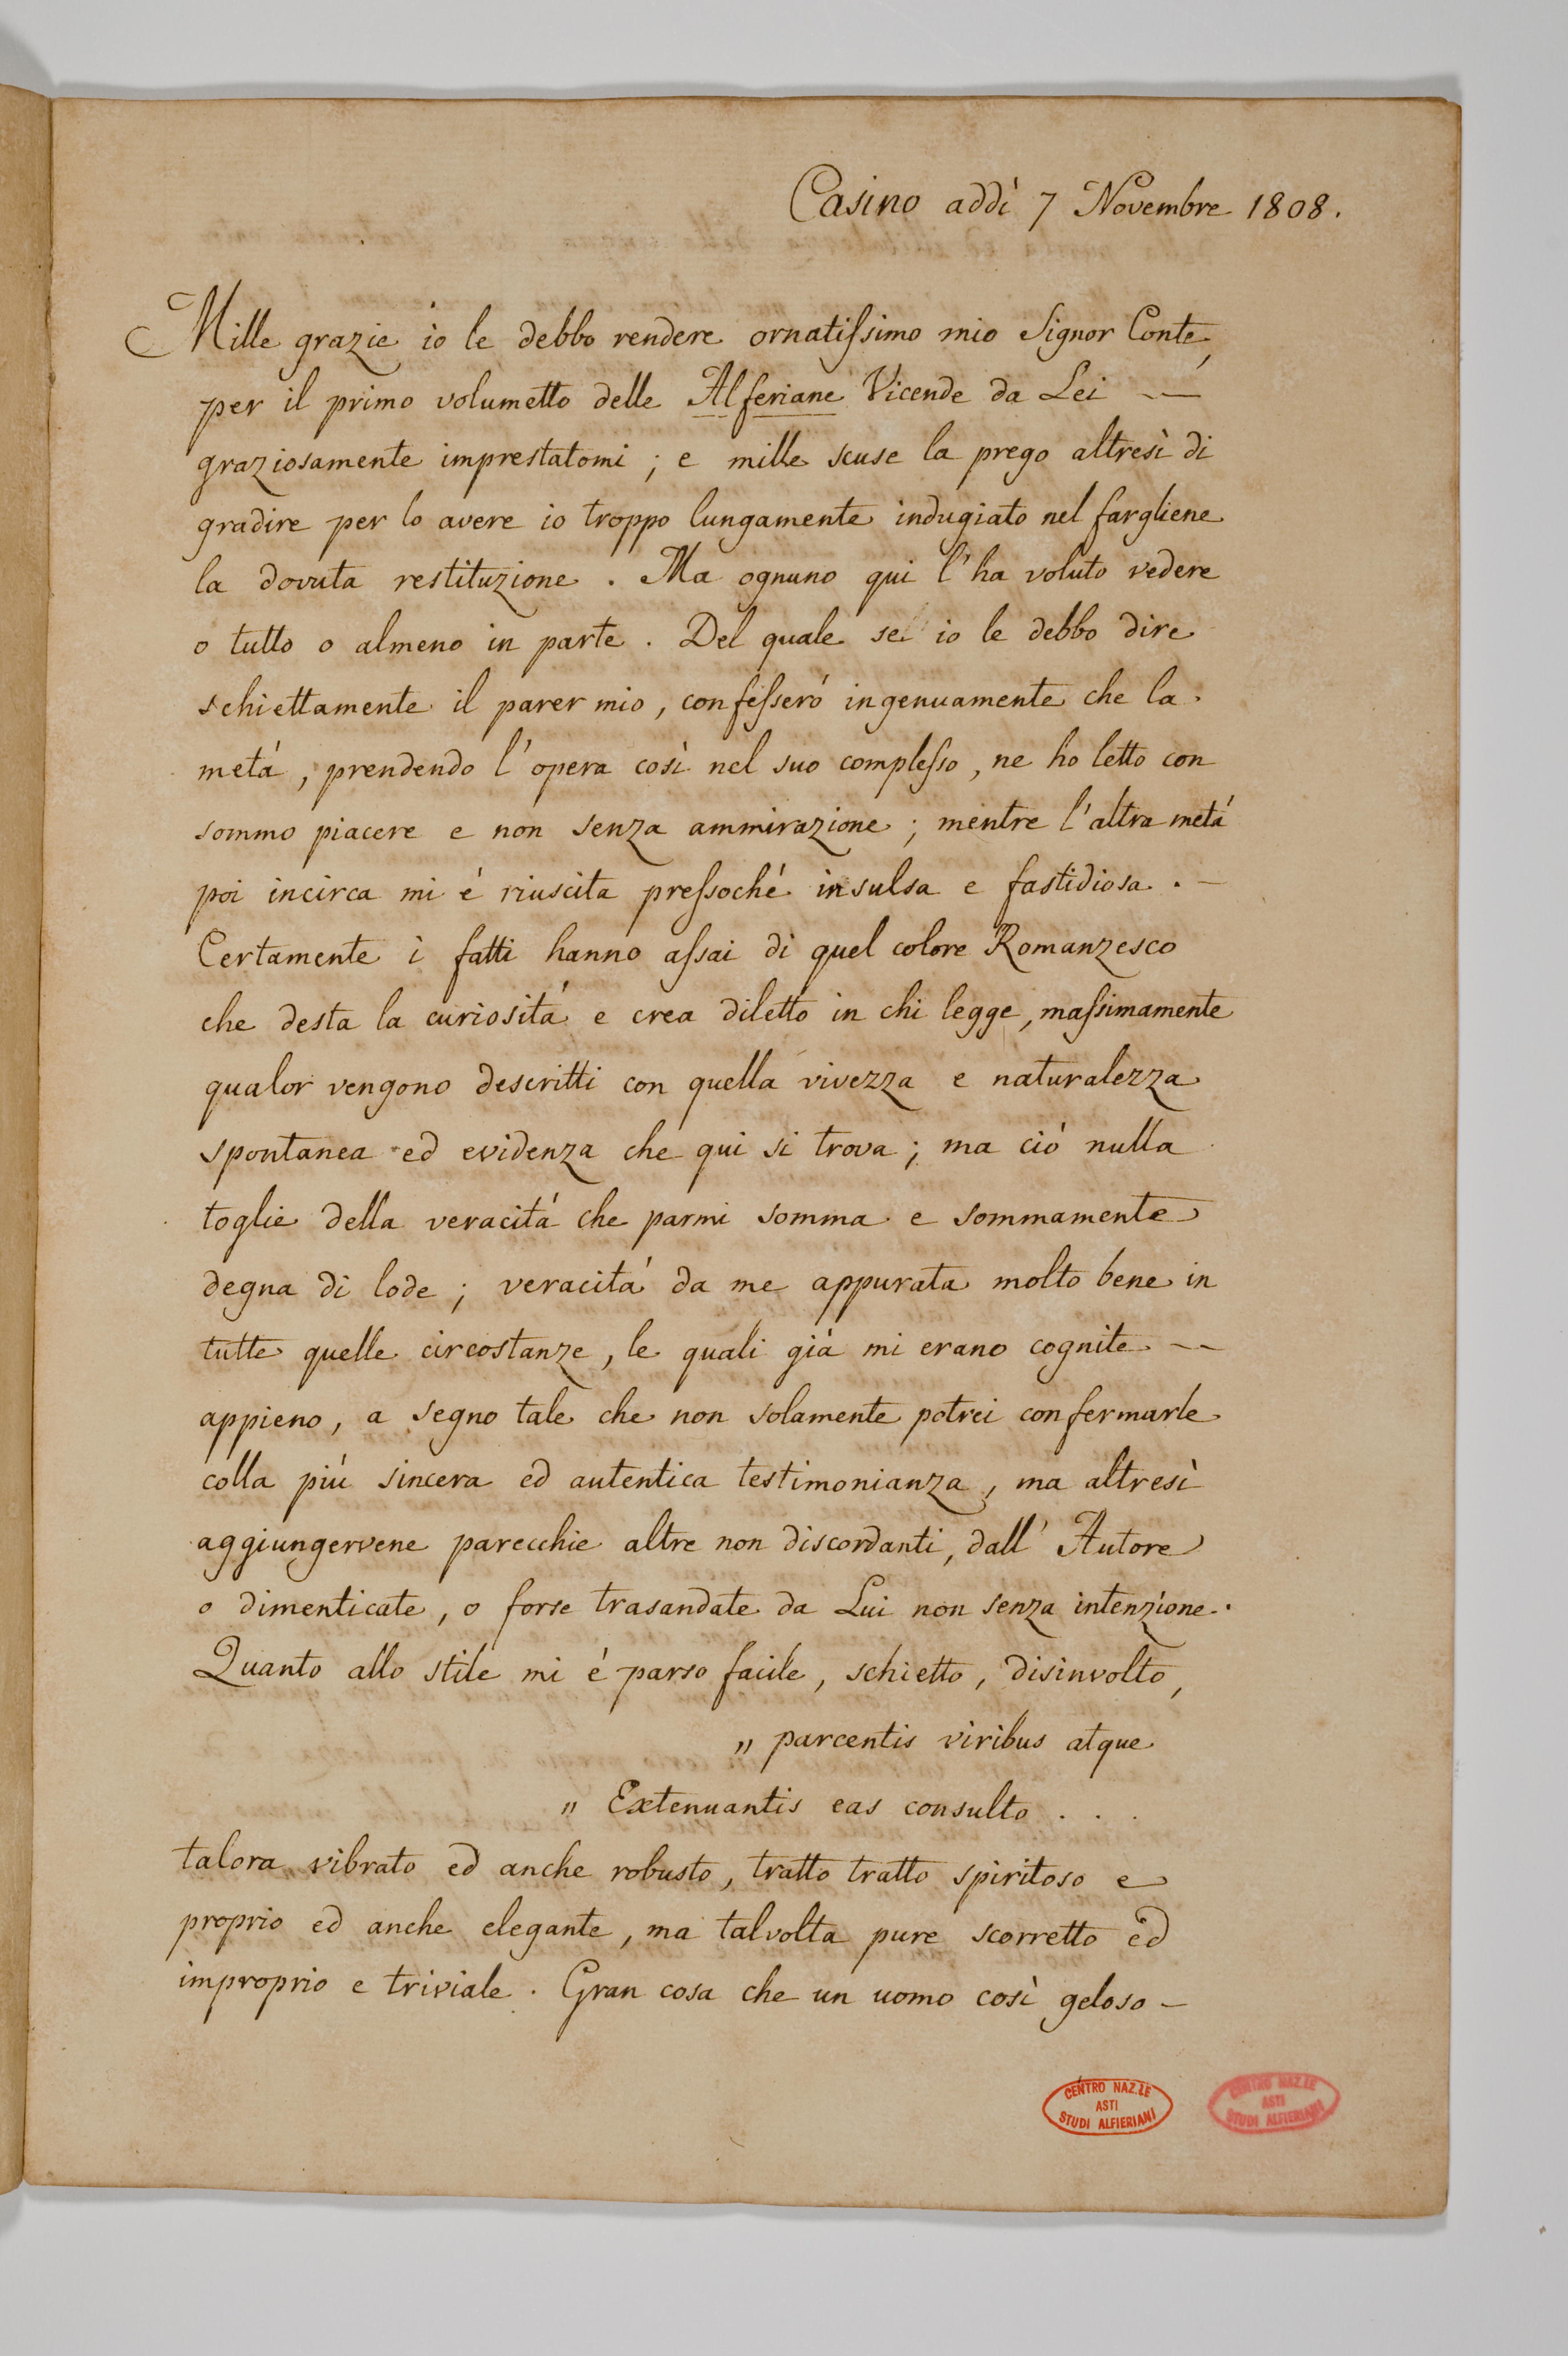 Casino addì 7 Novembre 1808.
Mille grazie io le debbo rendere ornatiſsimo mio Signor Conte,
per il primo volumetto delle Alferiane Vicende da Lei —
graziosamente imprestatomi ; e mille scuse la prego altresì di
gradire per lo avere io troppo lungamente indugiato nel fargliene
la dovuta restituzione . Ma ognuno qui l'ha voluto vedere
o tutto o almeno in parte . Del quale se io le debbo dire
schiettamente il parer mio , confeſserò ingenuamente che la
metá , prendendo l'opera così nel suo compleſso , ne ho letto con
sommo piacere e non senza ammirazione ; mentre l'altra metá
poi incirca mi é riuscita preſsoché insulsa e fastidiosa . —
Certamente i fatti hanno aſsai di quel colore Romanzesco
che desta la curiositá e crea diletto in chi legge , maſsimamente
qualor vengono descritti con quella vivezza e naturalezza
spontanea ed evidenza che qui si trova ; ma ció nulla
toglie della veracitá che parmi somma e sommamente
degna di lode ; veracitá da me appurata molto bene in
tutte quelle circostanze , le quali giá mi erano cognite —
appieno , a segno tale che non solamente potrei confermarle
colla piú sincera ed autentica testimonianza , ma altresì
aggiungervene parecchie altre non discordanti , dall' Autore
o dimenticate , o forse trasandate da Lui non senza intenzione .
Quanto allo stile mi é parso facile , schietto , disinvolto ,
" parcentis viribus atque
" Extenuantis eas consulto . . .
talora vibrato ed anche robusto , tratto tratto spiritoso e
proprio ed anche elegante , ma talvolta pure scorretto ed
improprio e triviale . Gran cosa che un uomo così geloso —
CENTRO NAZ.LE
ASTI
STUDI ALFIERIANI
CENTRO NAZ.LE
ASTI
STUDI ALFIERIANI